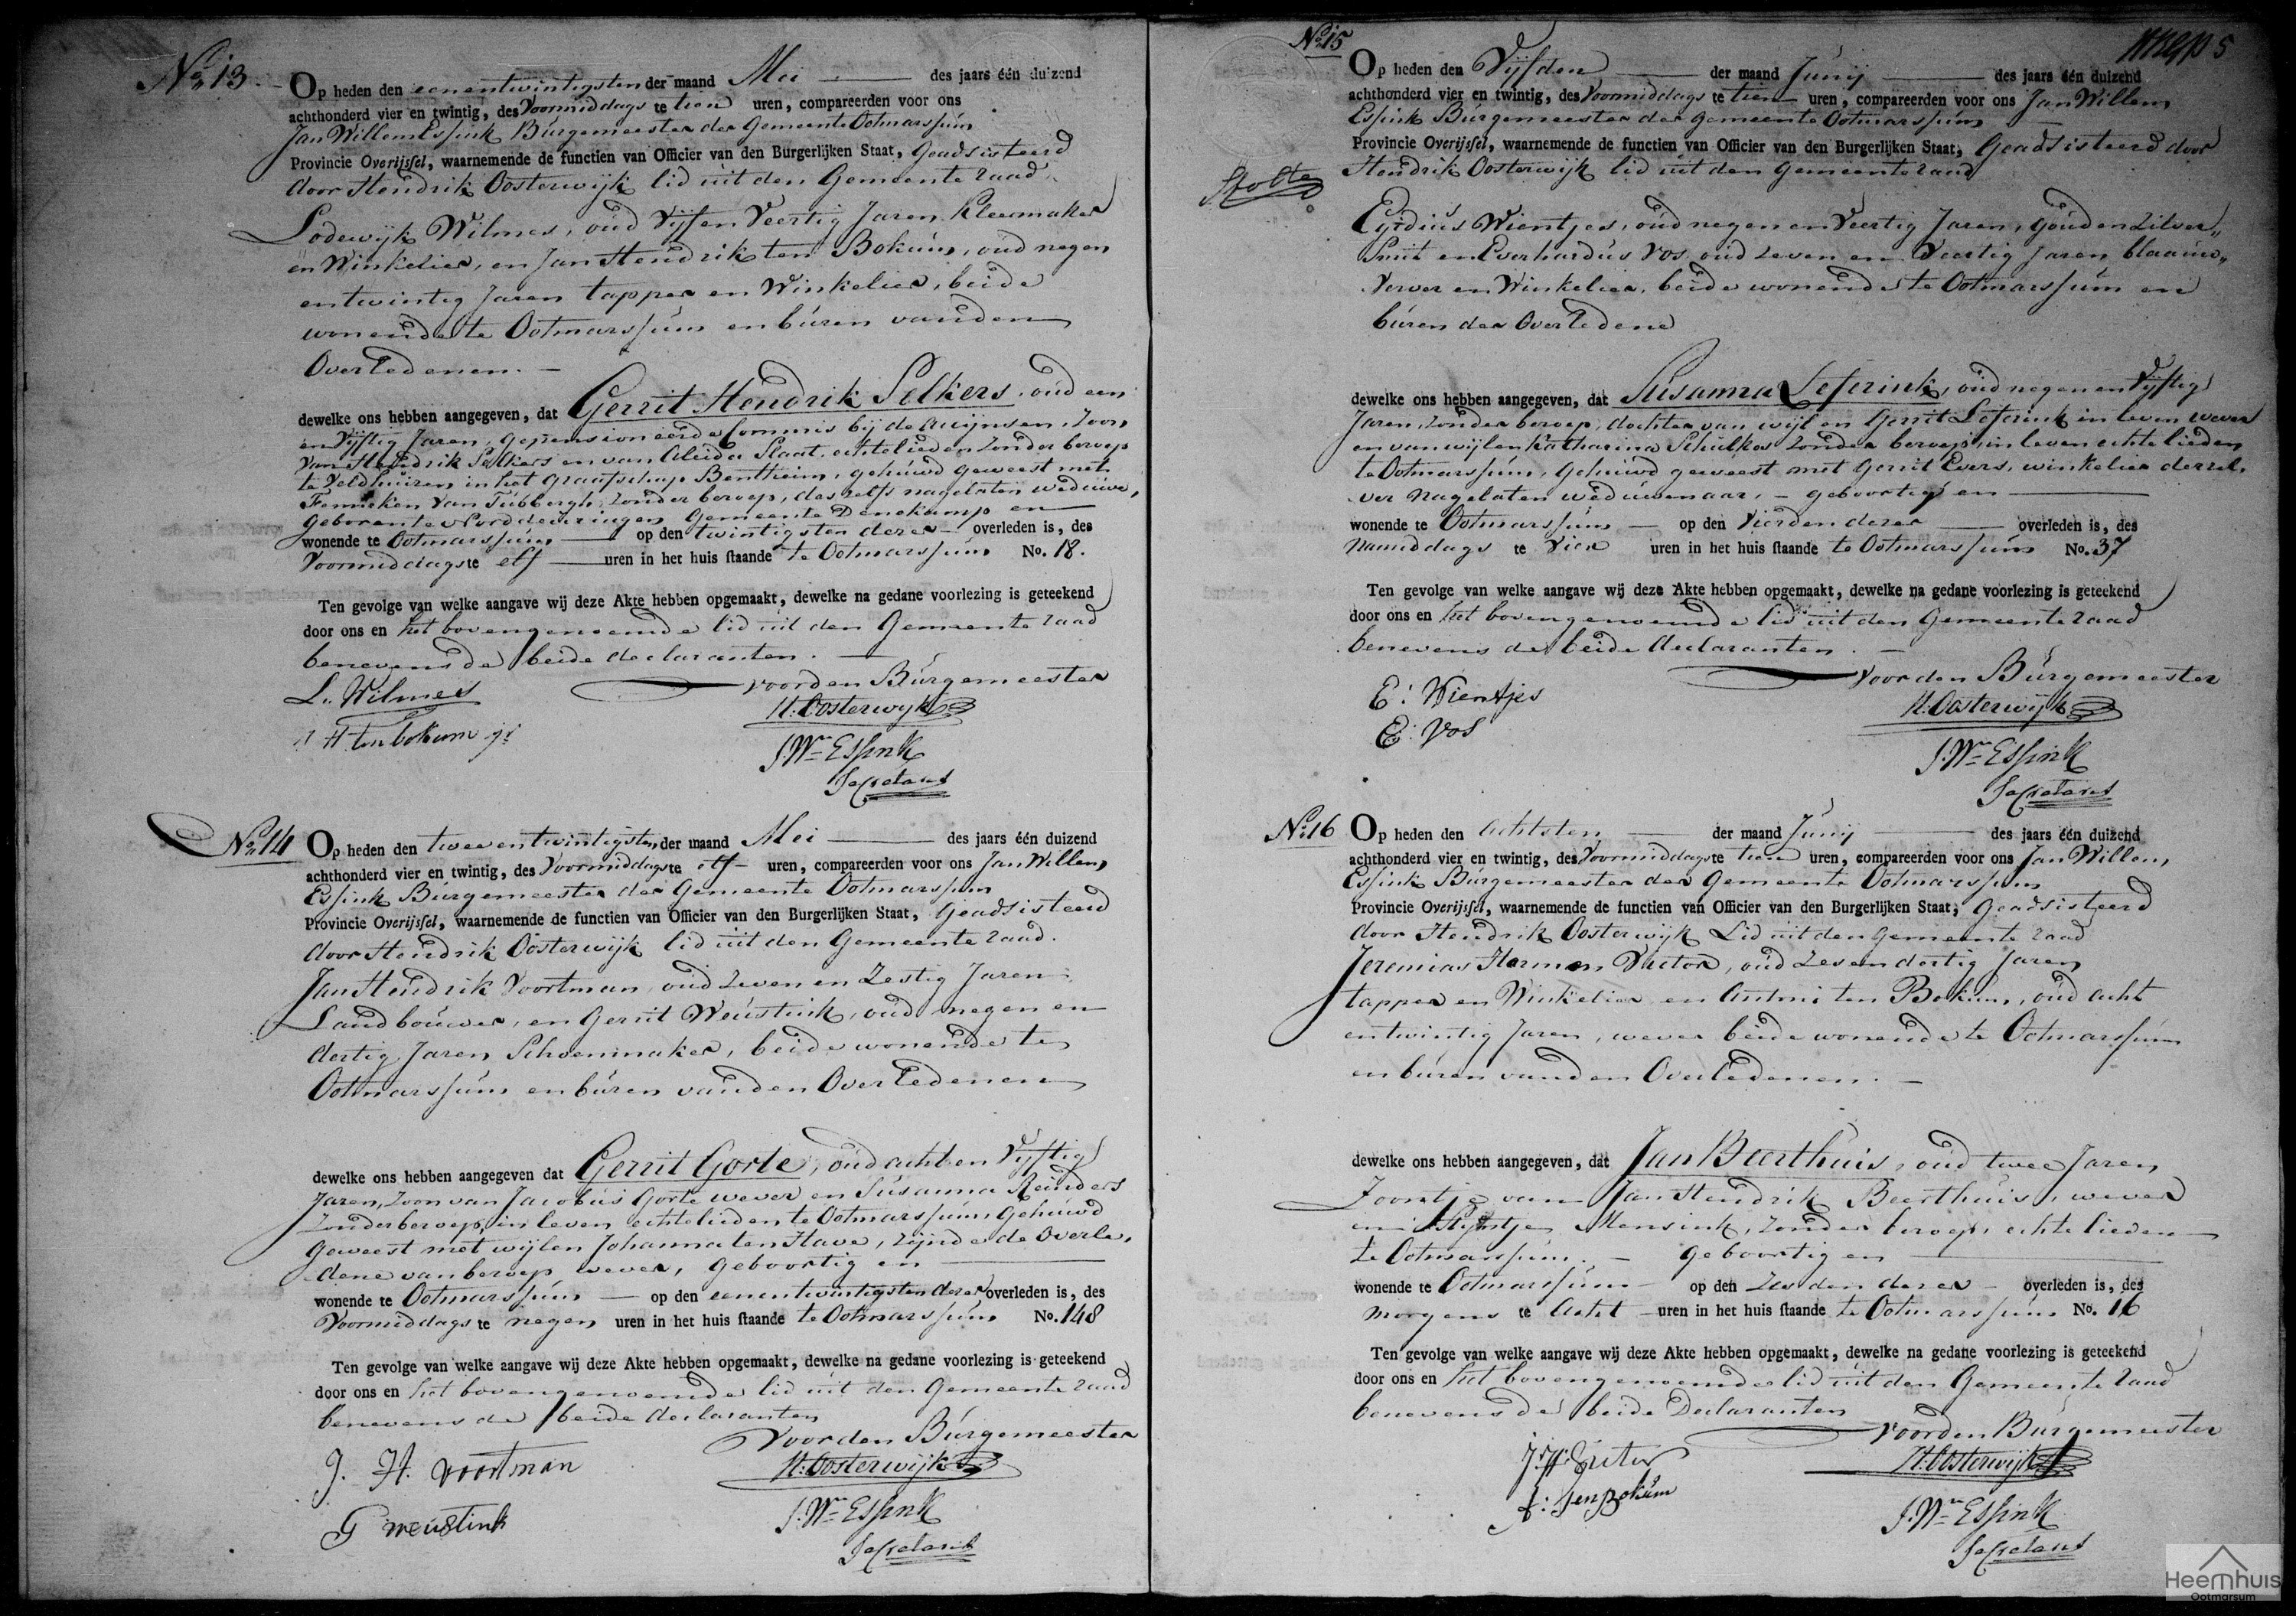 No. 13.
Op heden den eenentwintigsten der maand Mei des jaars één duizend
achthonderd vier en twintig, des Voormiddags te tien uren, compareerden voor ons
Jan Willem Essink Burgemeester der Gemeente Ootmarssum
Provincie Overijssel, waarnemende de functien van Officier van den Burgerlijken Staat, Geadsisteerd
door Hendrik Oosterwijk lid uit den Gemeente raad
Lodewijk Wilmes, oud Vijf en Veertig Jaren Kleermaker
en Winkelier, en Jan Hendrik ten Bokum, oud negen
en twintig Jaren tapper en Winkelier, beide
wonende te Ootmarssum en buren van den
Overledenen.
dewelke ons hebben aangegeven, dat Gerrit Hendrik Selkers, oud een
en Vijftig Jaren, gepensioneerde Commis bij de Accijnsen, Zoon
van Hendrik Selkers en van Aleida Slaat, echtelieden Zonder beroep
te Veldhuizen in het Graafschap Bentheim, gehuwd geweest met
Fenneken van Tubbergh, Zonder beroep, des zelfs nagelaten weduwe,
geboren te Noorddeurningen Gemeente Denekamp en
wonende te Ootmarssum op den twintigsten dezer overleden is, des
Voormiddags te elf uren in het huis staande te Ootmarssum No. 18.
Ten gevolge van welke aangave wij deze Akte hebben opgemaakt, dewelke na gedane voorlezing is geteekend
door ons en het bovengenoemde lid uit den Gemeente raad
benevens de beide declaranten.
voor den Burgemeester
L. Wilmes
H. Oosterwijk
J H ten bokum jr
J. Wm Essink
Secretaris
No. 14
Op heden den twee en twintigsten der maand Mei des jaars één duizend
achthonderd vier en twintig, des Voormiddags te elf uren, compareerden voor ons Jan Willem
Essink Burgemeester der Gemeente Ootmarssum
Provincie Overijssel, waarnemende de functien van Officier van den Burgerlijken Staat, Geadsisteerd
door Hendrik Oosterwijk lid uit den Gemeente raad.
Jan Hendrik Voortman, oud Zeven en Zestig Jaren
Landbouwer, en Gerrit Weustink, oud negen en
dertig Jaren Schoenmaker, beide wonende te
Ootmarssum en buren van den Overledenen
dewelke ons hebben aangegeven dat Gerrit Gorte, oud acht en Vijftig
Jaren, Zoon van Jacobus Gorte wever en Susanna Reinders
Zonder beroep, in leven echtelieden te Ootmarssum, Gehuwd
geweest met wijlen Johanna ten Have, zijnde de Overle,
dene van beroep wever, geboortig en
wonende te Ootmarssum op den eenentwintigsten dezer overleden is, des
Voormiddags te negen uren in het huis staande te Ootmarssum No. 148
Ten gevolge van welke aangave wij deze Akte hebben opgemaakt, dewelke na gedane voorlezing is geteekend
door ons en het bovengenoemde lid uit den Gemeente raad
benevens de beide declaranten
Voor den Burgemeester
J. H. Voortman
H. Oosterwijk
G weustink
J. Wm Essink
Secretaris
No. 15
Op heden den Vijfden der maand Junij des jaars één duizend
achthonderd vier en twintig, des Voormiddags te tien uren, compareerden voor ons Jan Willem
Essink Burgemeester der Gemeente Ootmarssum
Provincie Overijssel, waarnemende de functien van Officier van den Burgerlijken Staat, Geadsisteerd door
Hendrik Oosterwijk lid uit den Gemeente raad
Egidius Wientjes, oud negen en Veertig Jaren, goud en Zilver„
Smit en Everhardus Vos oud zeven en Veertig Jaren blaauw„
Verver en Winkelier, beide wonende te Ootmarssum en
buren der Overledene
dewelke ons hebben aangegeven, dat Susanna Leferink, oud negen en Vijftig
Jaren, Zonder beroep, dochter van wijlen Gerrit Leferink in leven wever
en van wijlen Katharina Schulkes Zonder beroep, in leven echtelieden
te Ootmarssum, Gehuwd geweest met Gerrit Evers, winkelier derzel„
ver nagelaten weduwenaar, geboortig en
wonende te Ootmarssum op den Vierden dezer overleden is, des
Namiddags te Vier uren in het huis staande te Ootmarssum No. 37
Ten gevolge van welke aangave wij deze Akte hebben opgemaakt, dewelke na gedane voorlezing is geteekend
door ons en het bovengenoemde lid uit den Gemeente raad
benevens de beide declaranten.
Voor den Burgemeester
E: Wientjes
H. Oosterwijk
E: Vos
J. Wm Essink
Secretaris
No. 16
Op heden den Achtsten der maand Junij des jaars één duizend
achthonderd vier en twintig, des Voormiddags te tien uren, compareerden voor ons Jan Willem
Essink Burgemeester der Gemeente Ootmarssum
Provincie Overijssel, waarnemende de functien van Officier van den Burgerlijken Staat, Geadsisteerd
door Hendrik Oosterwijk Lid uit den Gemeente raad
Jeremias Harmen, oud Zes en dertig Jaren
tapper en Winkelier en Antoni ten Bokum, oud acht
en twintig Jaren, wever beide wonende te Ootmarssum
en buren van den Overledenen.
dewelke ons hebben aangegeven, dat Jan Beerthuis, oud twee Jaren
Zoontje van Jan Hendrik Beerthuis, wever
en Stijntje Mensink, Zonder beroep, echtelieden
te Ootmarssum. geboortig en
wonende te Ootmarssum op den Zesden dezer overleden is, des
morgens te Acht uren in het huis staande te Ootmarssum No. 16
Ten gevolge van welke aangave wij deze Akte hebben opgemaakt, dewelke na gedane voorlezing is geteekend
door ons en het bovengenoemde lid uit den Gemeente raad
benevens de beide Declaranten
Voor den Burgemeester
H. Oosterwijk
A: ten Bokum
J. Wm Essink
Secretaris
Heemhuis
Ootmarsum